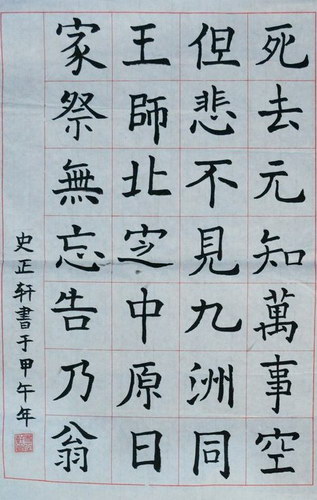 死去元知萬事空
但悲不見九洲同
王師北㝎中原日
家祭無忘告乃翁
史正轩書于甲午年